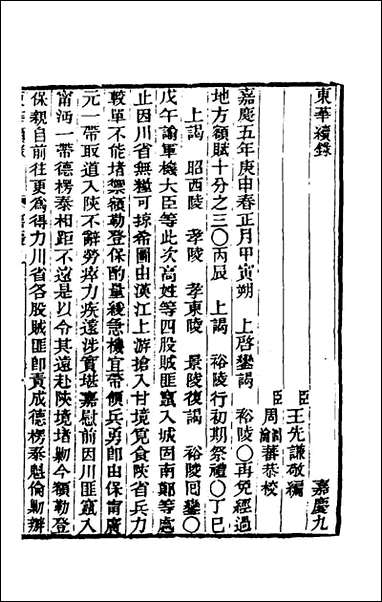 東華續錄　嘉慶九
臣王先謙敬編
臣周潤蕃周瀹蕃恭校
嘉慶五年庚申春正月甲寅朔　上啓鑾謁　裕陵〇再免經過
地方額賦十分之三〇丙辰　上謁　裕陵行初期祭禮〇丁巳
上謁　昭西陵　孝陵　孝東陵　景陵復謁　裕陵回鑾〇
戊午諭軍機大臣等此次高姓等四股賊匪竄入城固南鄭等處
止因川省無糧可掠希圖由漢江上游搶入甘境覓食陝省兵力
較單不能堵禦額勒登保酌量緩急機宜帶領兵勇卽由保甯廣
元一帶取道入陝不辭勞瘁力疾遠涉實堪嘉慰前因川匪竄入
甯沔一帶德楞泰相距不遠是以令其遠赴陝境堵勦今額勒登
保親自前往更爲得力川省各股賊匪卽責成德楞泰魁倫勦辦